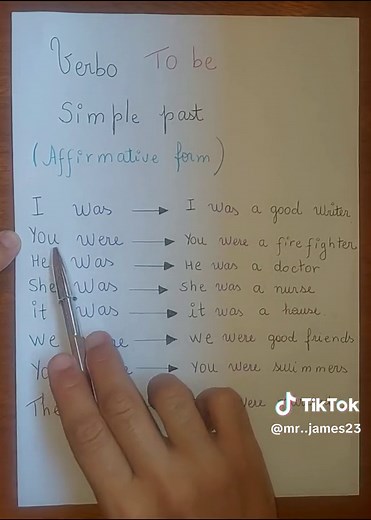 Verbo To be
Simple past
(Affirmative form)
I was → I was a good writer
You were → You were a firefighter
He was → He was a doctor
She was → She was a nurse
it was → it was a house.
we → we were good friends
→ You were swimmers
were
TikTok
@mr..james23